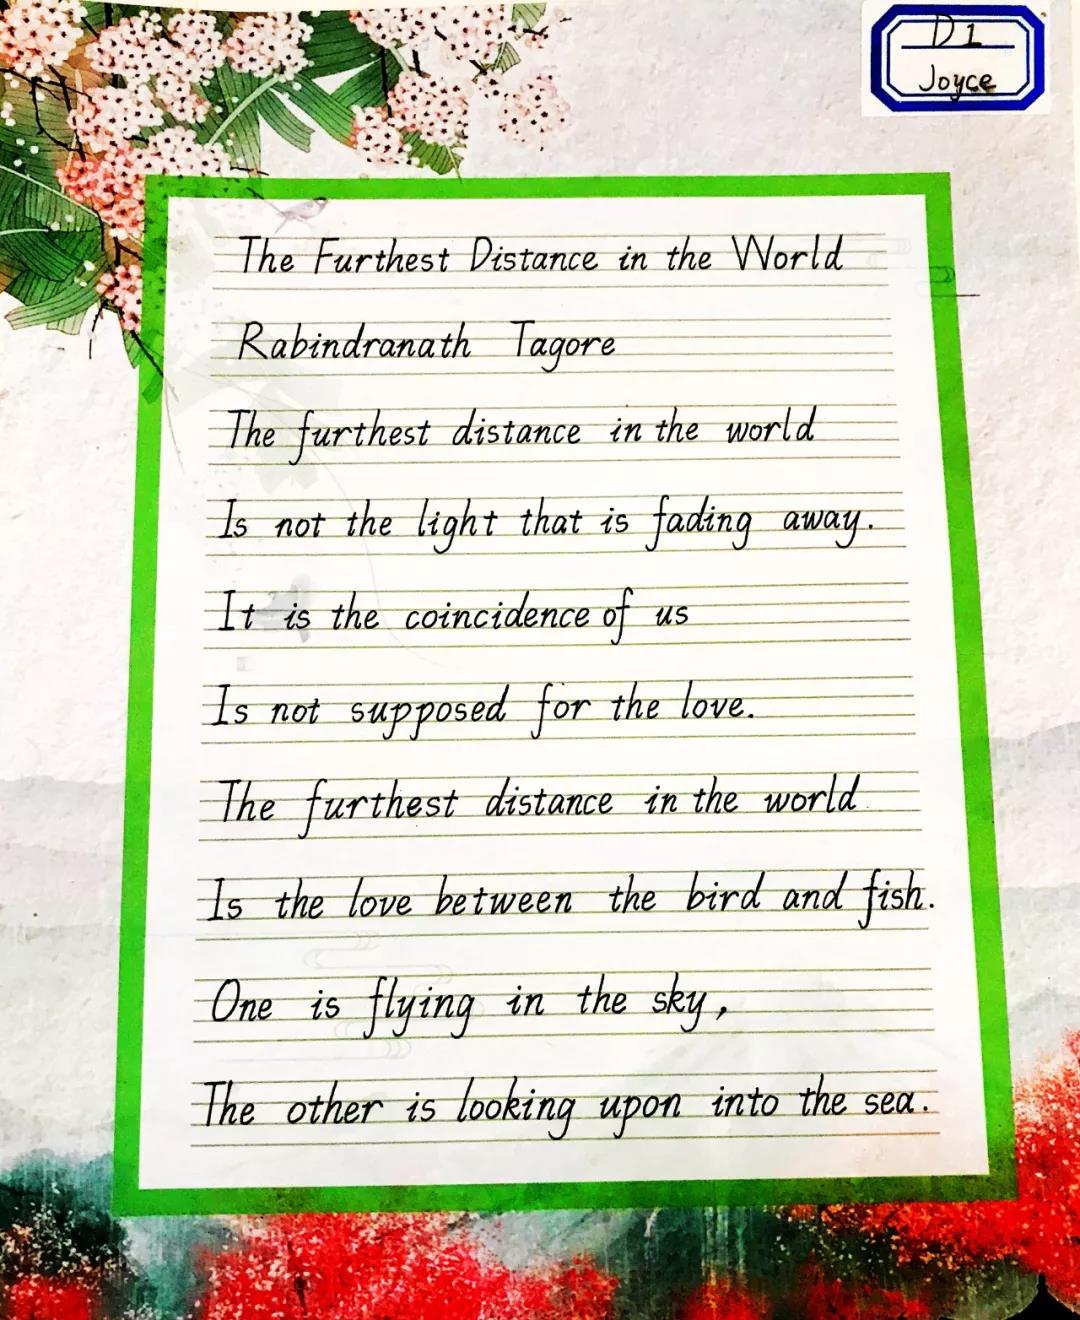 D1
Joyce
The Furthest Distance in the World
Rabindranath Tagore
The furthest distance in the world
Is not the light that is fading away.
It is the coincidence of us
Is not supposed for the love.
The furthest distance in the world
Is the love between the bird and fish.
One is flying in the sky,
The other is looking upon into the sea.